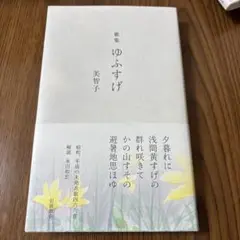 歌集
ゆふすげ
美智子
夕暮れに
浅間黄すげの
群れ咲きて
かの山すその
避暑地思ほゆ
解説 永田和宏